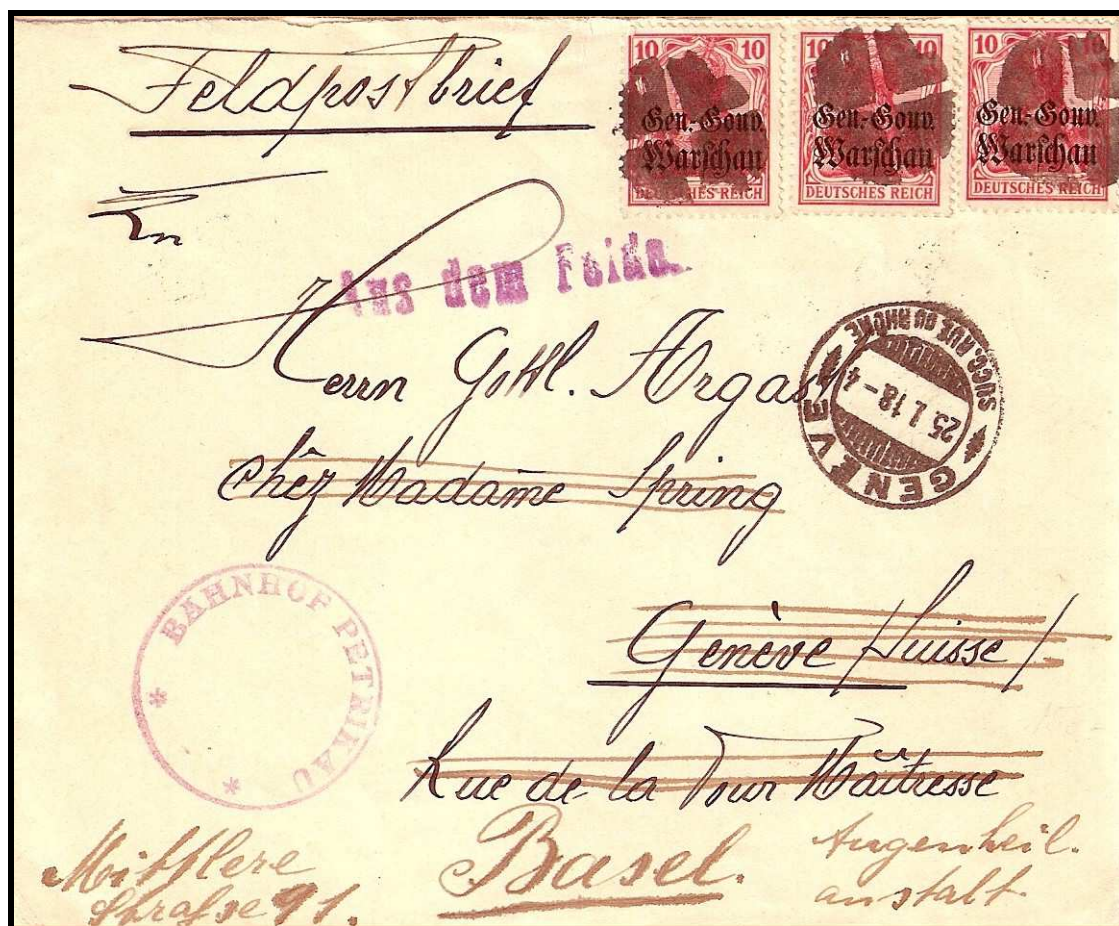 Feldpostbrief
10 10
Gen.-Gouv.
Warschau
DEUTSCHES REICH
10 10
Gen.-Gouv.
Warschau
DEUTSCHES REICH
10 10
Gen.-Gouv.
Warschau
DEUTSCHES REICH
An
Aus dem Felde.
Herrn Gottl. Argast
chez Madame Spring
GENÈVE
SUCC. RUE DU RHÔNE
25.I.18-4
BAHNHOF PETRIKAU
Genève /Suisse/
Rue de la Tour Maîtresse
Mittlere
Strasse 91.
Basel.
Augenheil.
anstalt